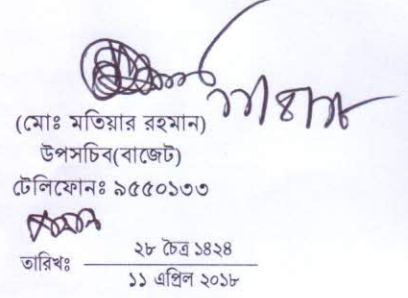 (মোঃ মতিয়ার রহমান)
উপসচিব(বাজেট)
টেলিফোনঃ ৯৫৫০১৩৩
তারিখঃ ২৮ চৈত্র ১৪২৪
১১ এপ্রিল ২০১৮